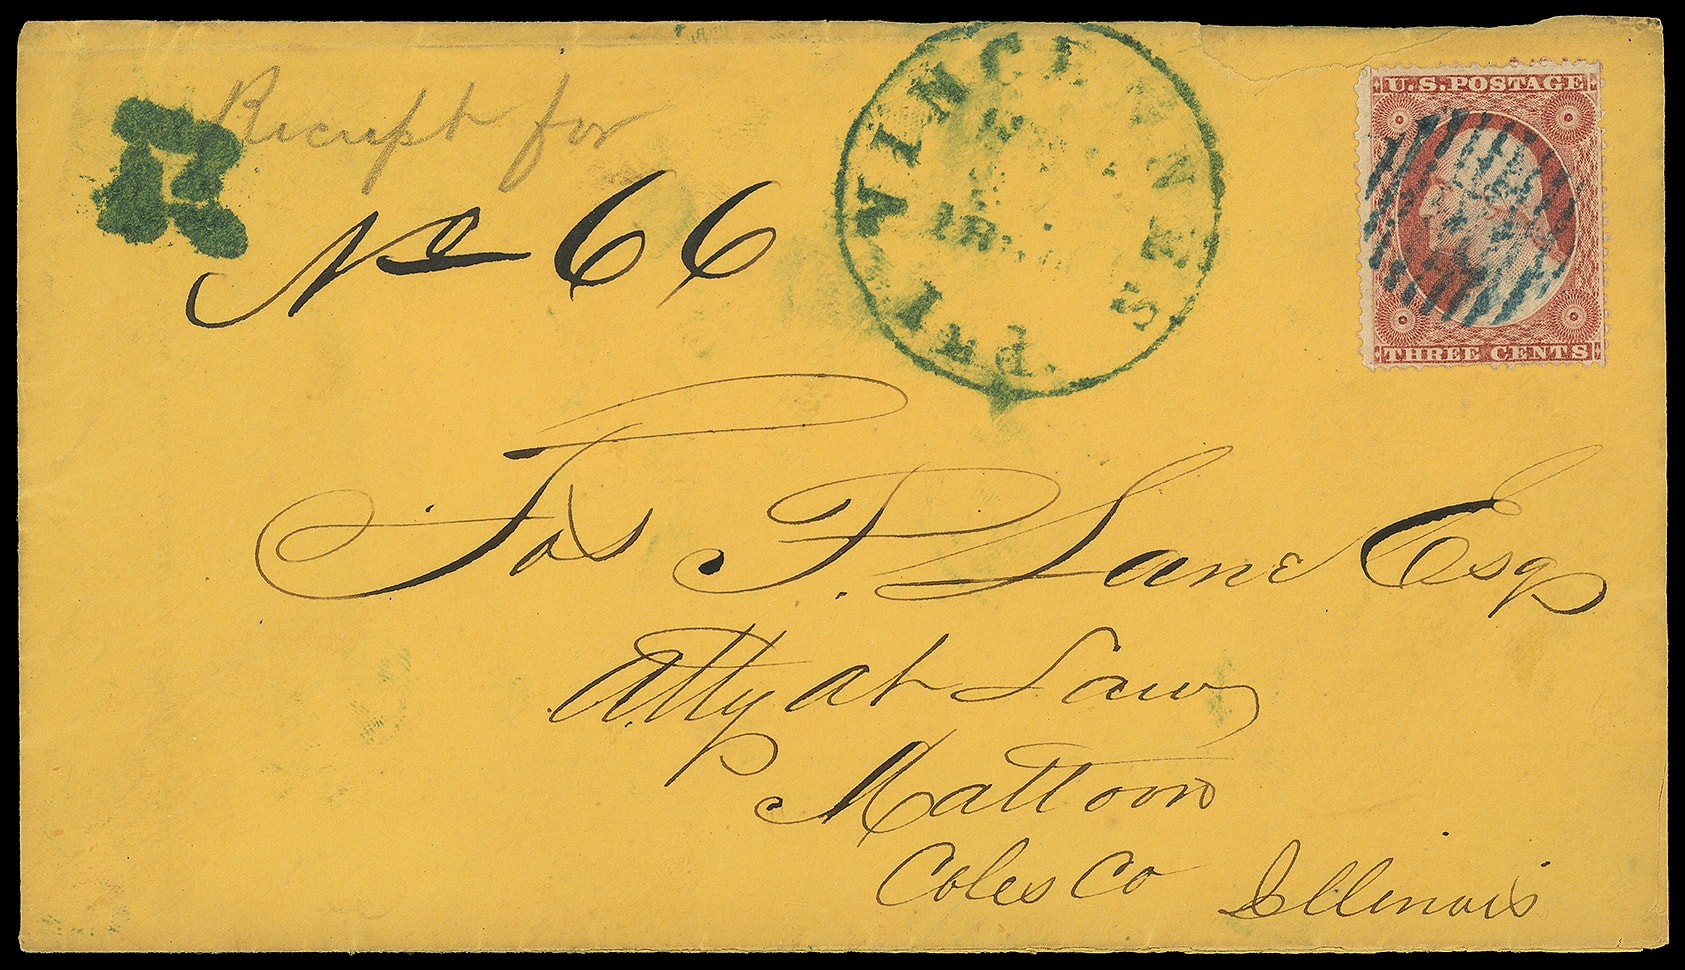 Reciept for
No 66
VINCENNES
Ind.
U.S. POSTAGE
THREE CENTS
Jas P. Lane Esq
Atty at Law
Mattoon
Coles Co Illinois